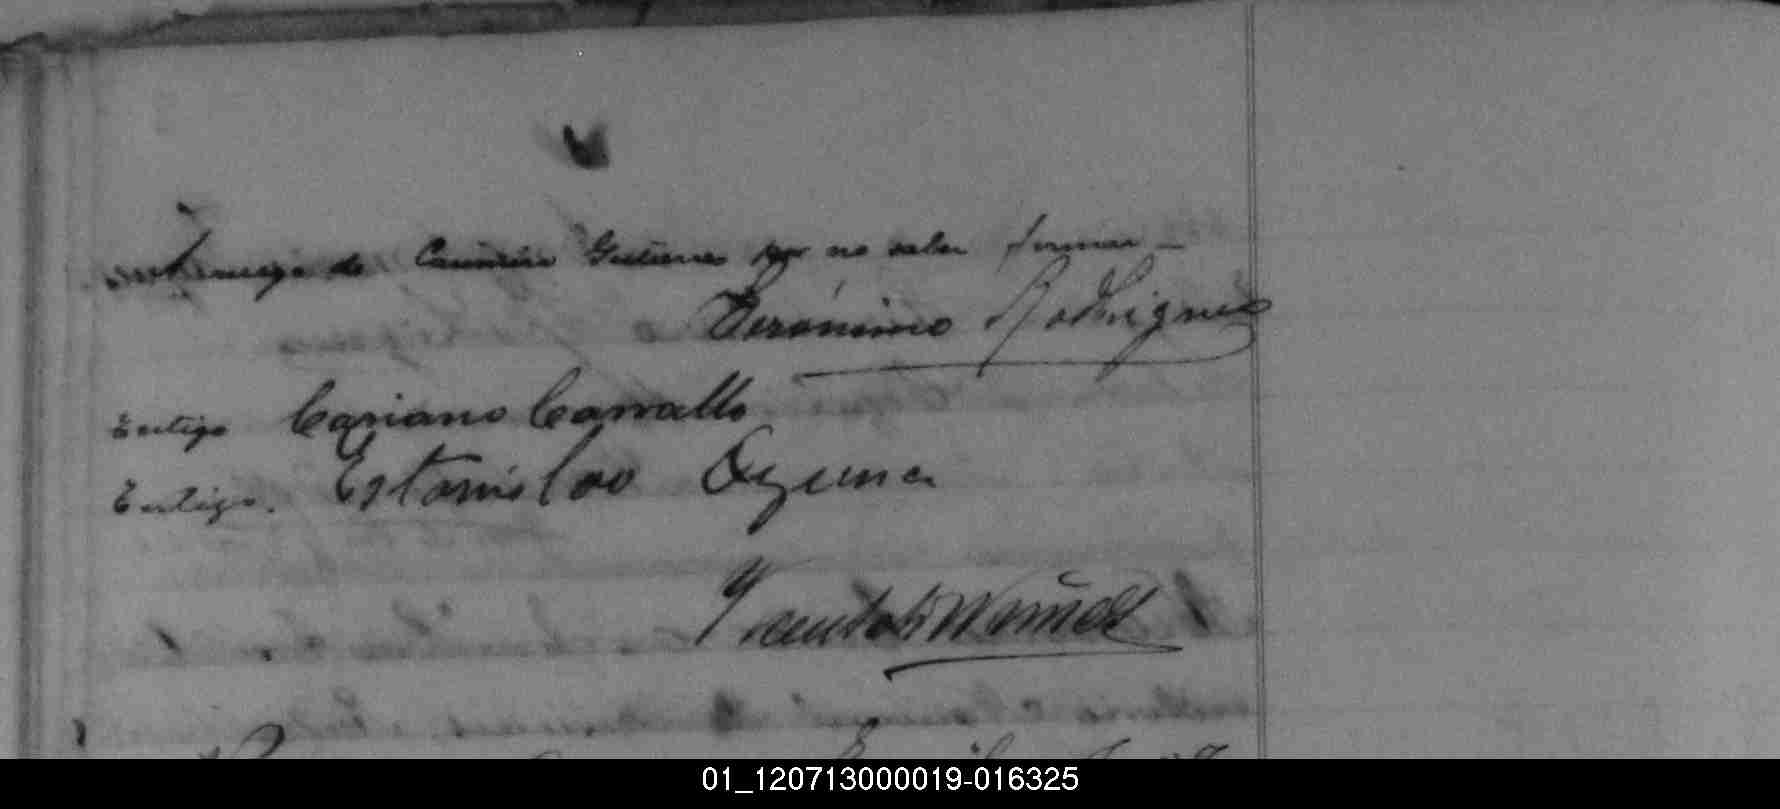 A ruego de Casimiro Gutierrez por no saber firmar —
Gerónimo Rodriguez
testigo Cipriano Carvallo
testigo. Estanislao Ozuna
01_120713000019-016325